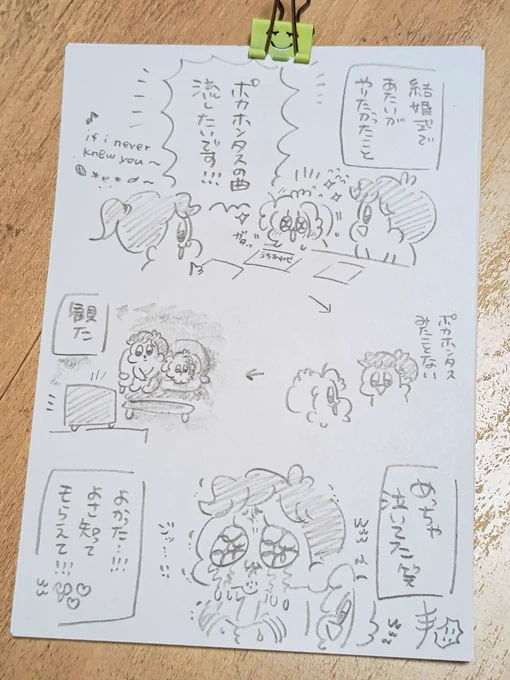 結婚式で
あたいが
やりたかったこと
ポカホンタスの曲
流したいです!!!
♪
if i never
knew you〜
ガタッ
うちあわせ
ポカホンタス
みたことない
観た
めっちゃ
泣いてた笑
ジッ…
よかった…!!!
よさ知って
もらえて!!!